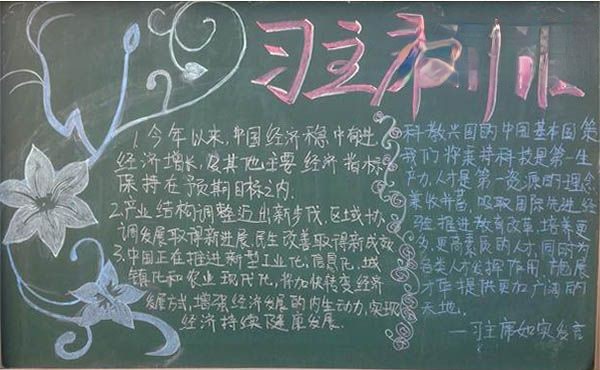 习主
1.今年以来,中国经济稳中有进
经济增长,及其他主要经济指标
保持在预期目标之内.
2.产业结构调整迈出新步伐,区域协
调发展取得新进展,民生改善取得新成效
3.中国正在推进新型工业化,信息化,城
镇化和农业现代化,将加快转变经济
发展方式,增强经济发展的内生动力,实现
经济持续健康发展.
科教兴国的中国基本国策
我们将秉持科技是第一生
产力,人才是第一资源的理念
兼收并蓄,吸取国际先进经
验推进教育改革,培养更
多,更高素质的人才,同时为
各类人才发挥作用,施展
才华提供更加广阔的
天地.
—习主席如实发言